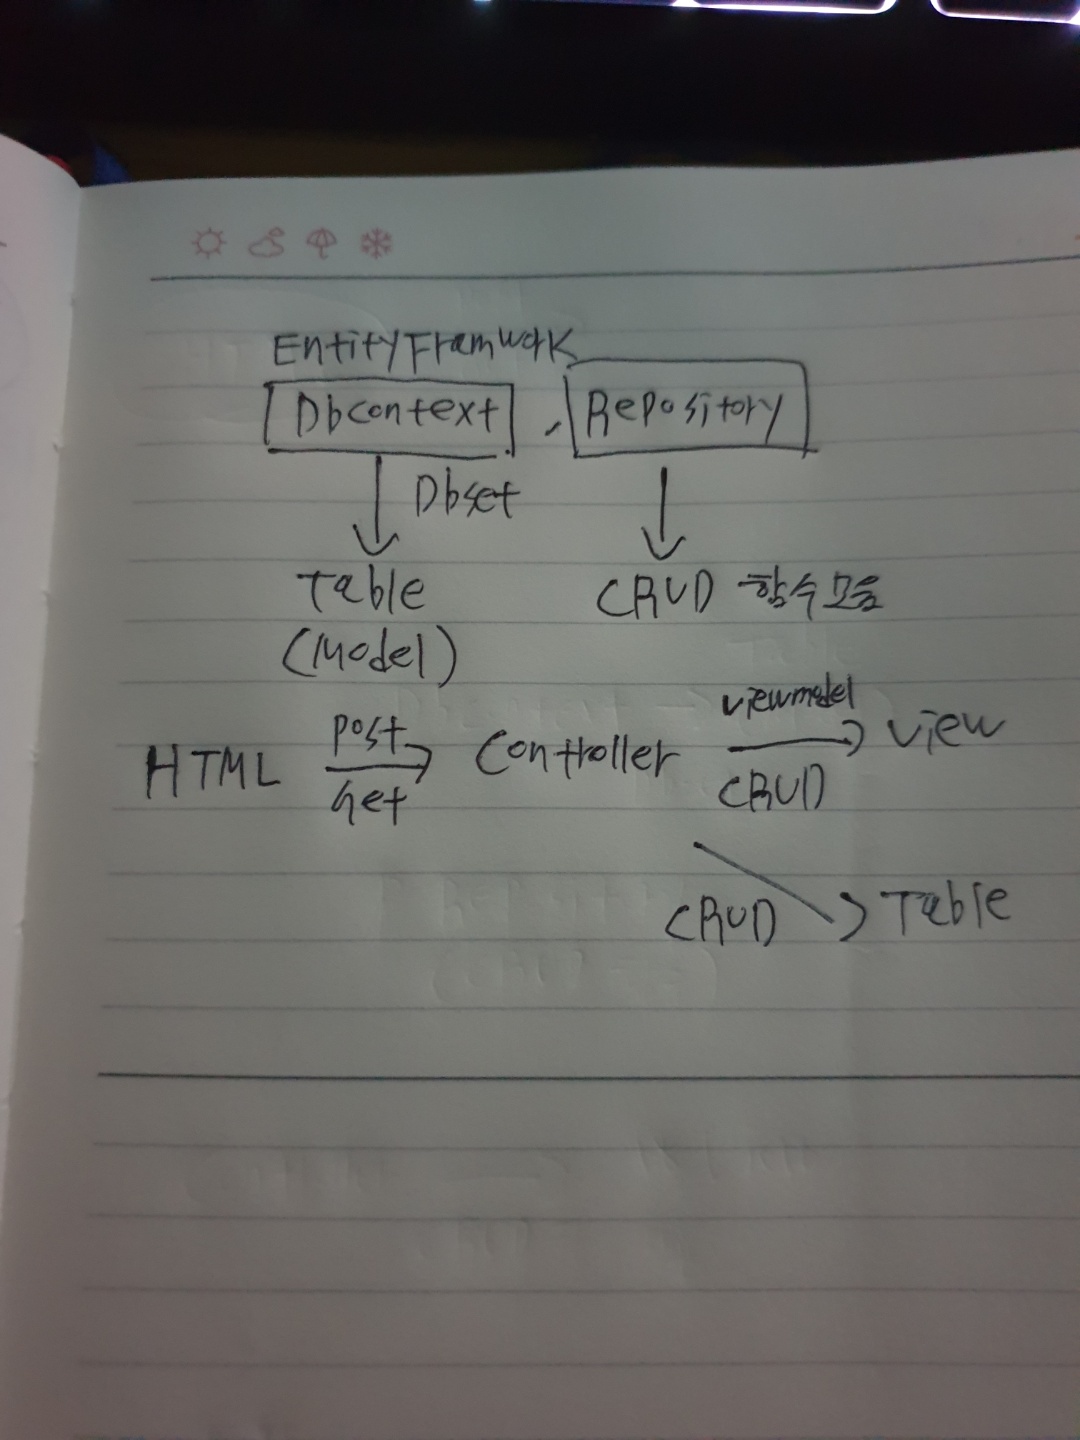 EntityFramwork
Dbcontext , Repository
Dbset
Table CRUD 함수모음
(Model)
HTML Post Get Controller viewmodel CRUD View
CRUD Table